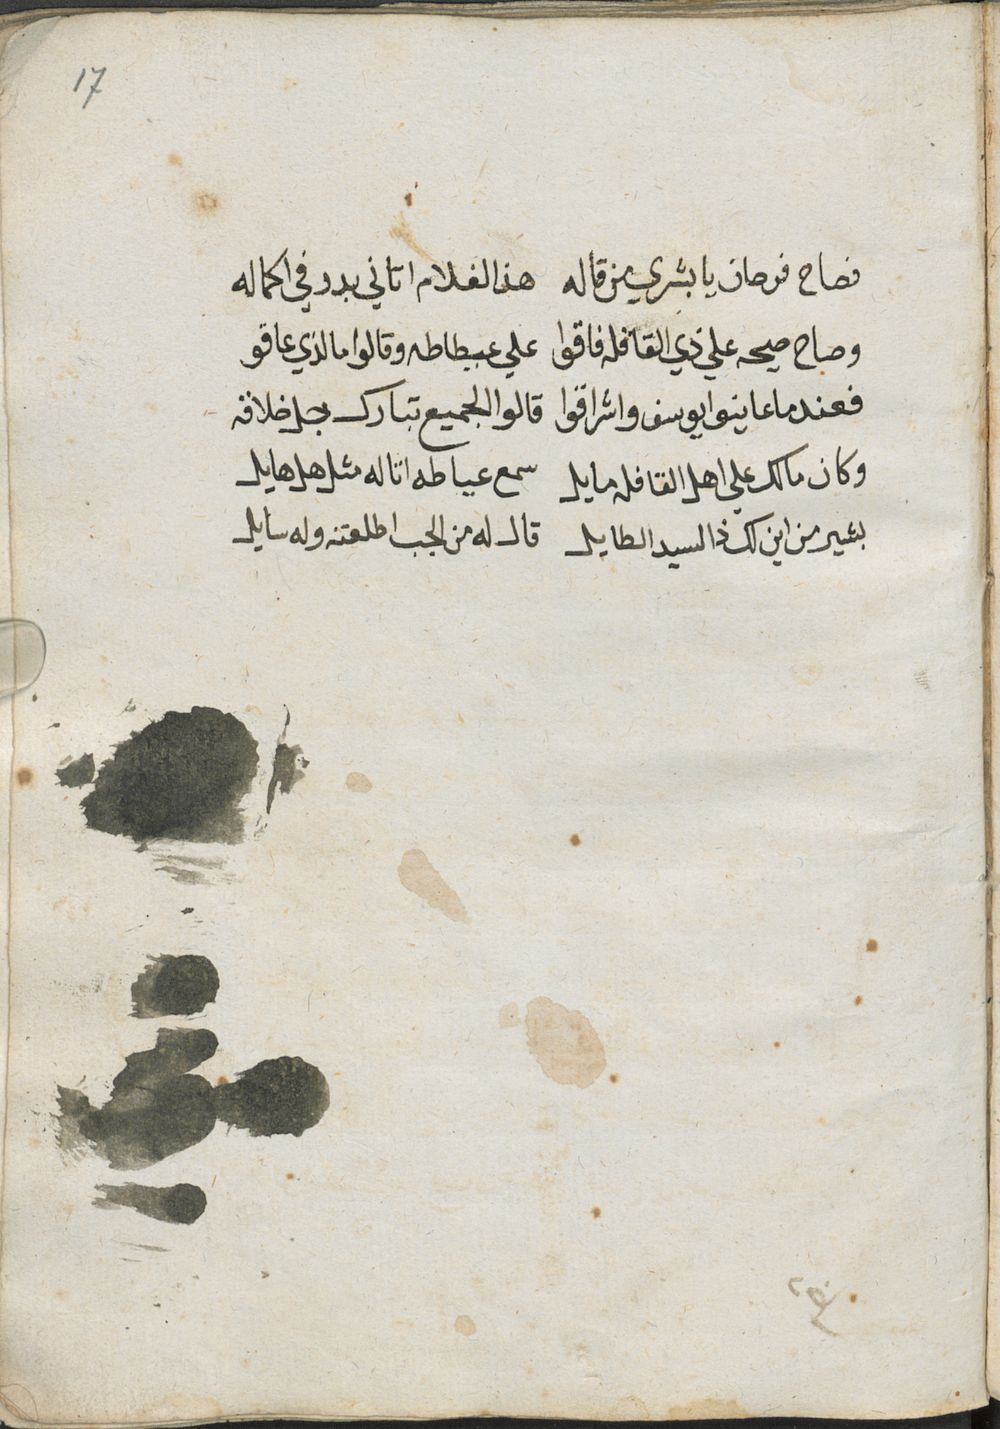 17
فصاح فرحان يا بشري من قاله هذا الغلام اتاني بدر في اكماله
وصاح صيحه علي ذي القافله فاقوا علي عيطاطه وقالوا ما لذي عاقو
فعندما عاينوا يوسف واشراقوا قالوا الجميع تبارك جل خلاقه
وكان مالك علي اهل القافله مايل سمع عياطه اتا له مثل هل هايل
بشير من اين لك ذا السيد الطايل قال له من الجب اطلعته وله سايل